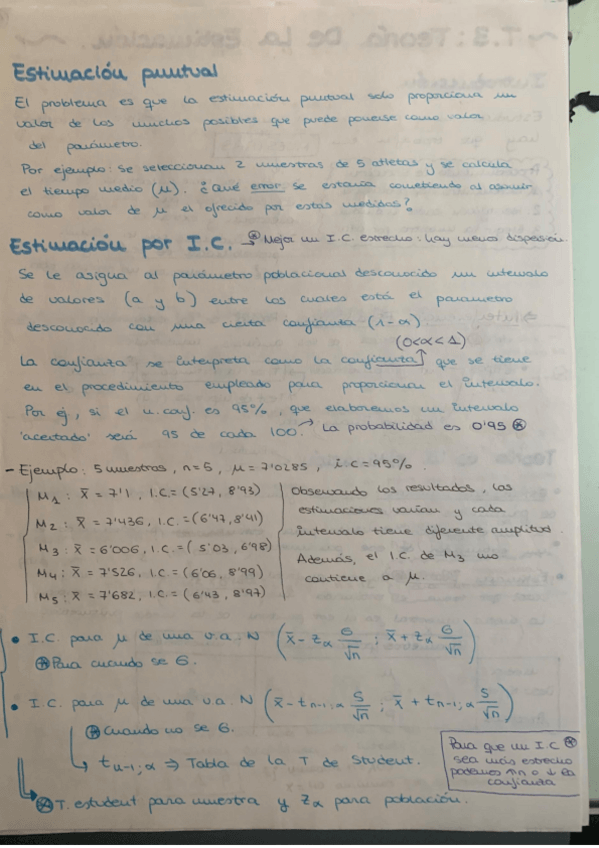 Estimación puntual
El problema es que la estimación puntual solo proporciona un
valor de los muchos posibles que puede ponerse como valor
del parámetro.
Por ejemplo: se seleccionan 2 muestras de 5 atletas y se calcula
el tiempo medio (μ). ¿Qué error se estaría cometiendo al asumir
como valor de μ el ofrecido por estas medidas?
Estimación por I.C. → ⊛ Mejor un I.C. estrecho: hay menos dispersión.
Se le asigna al parámetro poblacional desconocido un intervalo
de valores (a y b) entre los cuales está el parametro
desconocido con una cierta confianza (1-α)
(0<α<1)
La confianza se interpreta como la confianza que se tiene
en el procedimiento empleado para proporcionar el intervalo.
Por ej, si el n.conf. es 95%, que elaboremos un intervalo
'acertado' será 95 de cada 100. → La probabilidad es 0'95 ⊛
- Ejemplo: 5 muestras, n=5, μ = 7'0285, I.C=95%.
M1: x̄ = 7'1, I.C.= (5'27, 8'93)
M2: x̄ = 7'436, I.C.= (6'47, 8'41)
M3: x̄ = 6'006, I.C.= (5'03, 6'98)
M4: x̄ = 7'526, I.C.= (6'06, 8'99)
M5: x̄ = 7'682, I.C.= (6'43, 8'97)
Observando los resultados, las
estimaciones varían y cada
intervalo tiene diferente amplitud.
Además, el I.C. de M3 no
contiene a μ.
• I.C. para μ de una v.a. N (x̄ - zα σ/√n ; x̄ + zα σ/√n)
⊛ Para cuando se σ.
• I.C. para μ de una v.a. N (x̄ - t n-1;α S/√n ; x̄ + t n-1;α S/√n)
⊛ Cuando no se σ.
t n-1;α ⇒ Tabla de la T de Student.
⊛ T. student para muestra y zα para población.
Para que un I.C ⊛
sea más estrecho
podemos ↑n o ↓ la
confianza